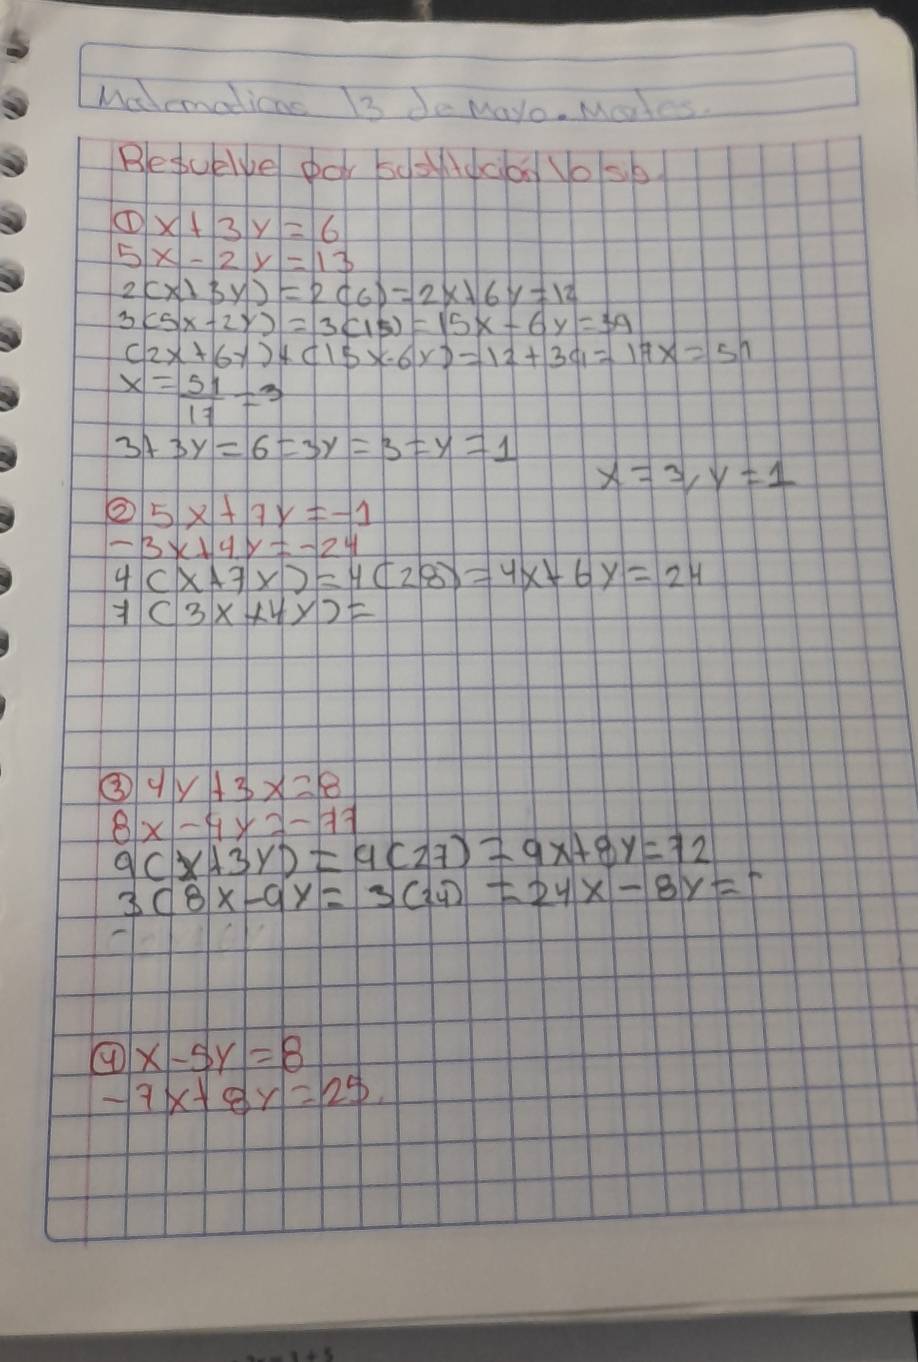 Matematicas 13 de Mayo. Martes.
Resuelve por sustitución lo sig
① x + 3y = 6
5x - 2y = 13
2(x+3y) = 2(6) = 2x+6y = 12
3(5x-2y) = 3(13) = 15x - 6y = 39
(2x+6y)+(15x-6y) = 12+39 = 17x = 51
x = 51/17 = 3
3+3y = 6 = 3y = 3 = y = 1
x = 3, y = 1
② 5x + 7y = -1
-3x+4y = -24
4(x+7y) = 4(28) = 4x+6y = 24
7(3x+4y) =
③ 4y + 3x = 8
8x - 9y = -77
9(x+3y) = 9(27) = 9x+8y = 72
3(8x-9y = 3(24) = 24x - 8y =
④ x - 5y = 8
-7x + 8y = 25.